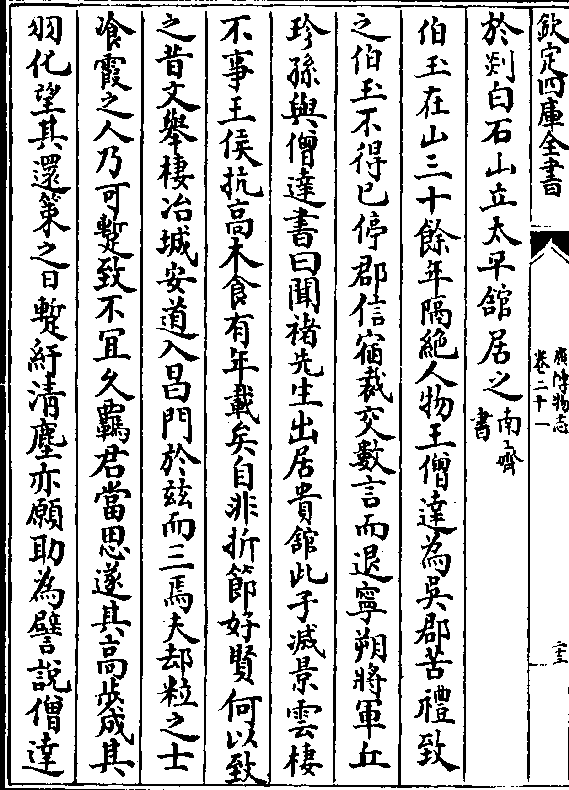 欽定四庫全書
廣博物志
卷二十一
於剡白石山立太平館居之南齊
書
伯玉在山三十餘年隔絶人物王僧達為吳郡苦禮致
之伯玉不得已停郡信宿裁交數言而退寧朔將軍丘
珍孫與僧達書曰聞褚先生出居貴館此子滅景雲棲
不事王侯抗髙木食有年載矣自非折節好賢何以致
之昔文舉棲冶城安道入昌門於兹而三焉夫却粒之士
飡霞之人乃可蹔致不宜久羈君當思遂其髙歩成其
羽化望其還策之日蹔紆清塵亦願助為譬説僧達